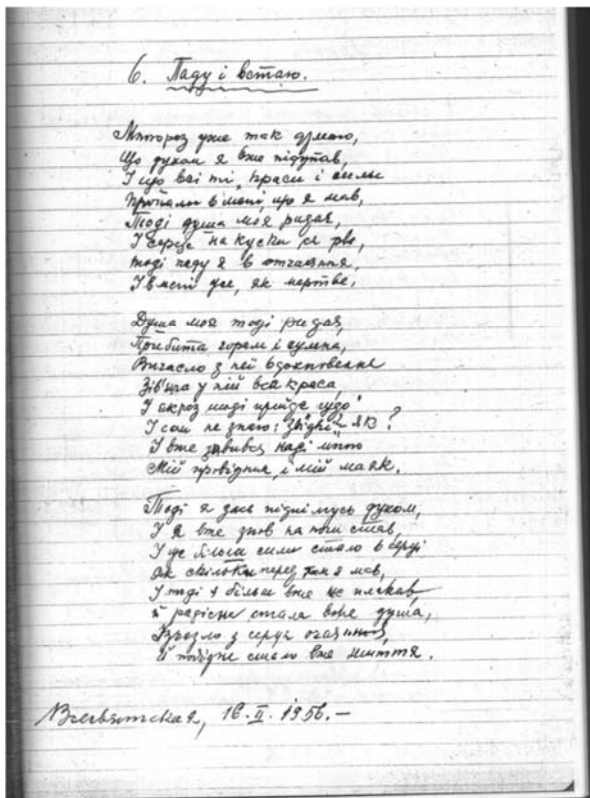 6. Паду і встаю.
уже так думаю,
Що духом я вже підупав,
І що всі ті, краси і сили
Пропали в мені, що я мав,
Тоді душа моя ридає,
І серце на куски ся рве,
тоді паду я в отчаяння,
І в мені усе, як мертве,
Душа моя тоді ридає,
Прибита горем і сумна,
Вигасло з неї вдохновенне
Зів'яла у ній вся краса,
І скрізь тоді прийде чудо
І сам не знаю: звідкіль як?
І вже зʼявився наді мною
Мій провідник, і мій маяк.
Тоді я знов піднімусь духом,
І я вже знов на ноги став,
І ще більше сили стало в серці
Як скільки перед тим я мав,
І тоді я більш вже не плакав,
й радісна стала вже душа,
з серця отчаяння,
Й стало вже життя.
16.II.1956.—